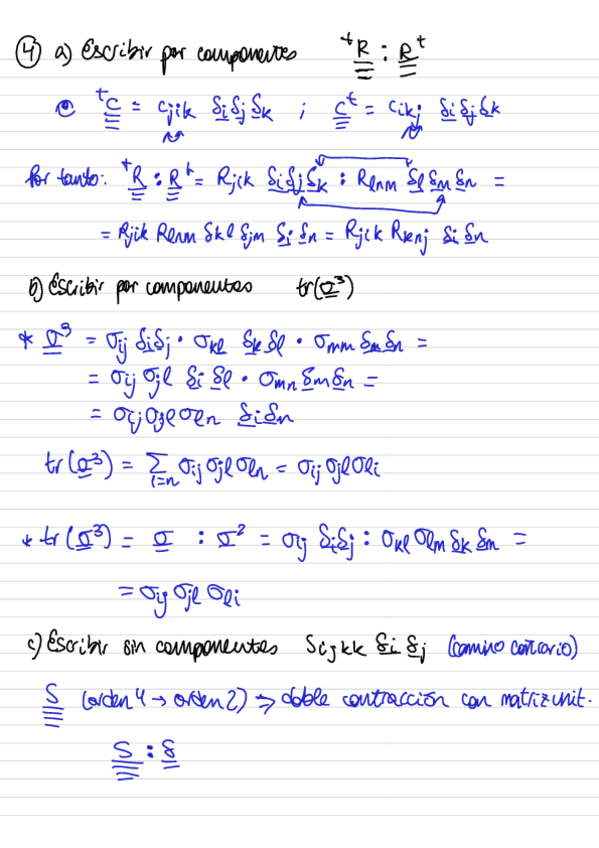 ④ a) Escribir por componentes ᵗR : Rᵗ
ᵗC = Cjik δi δj δk ; Cᵗ = Cikj δi δj δk
Por tanto: ᵗR : Rᵗ = Rjik δi δj δk : Rlnm δl δm δn =
= Rjik Rlnm δkl δjm δi δn = Rjik Rknj δi δn
b) Escribir por componentes tr(σ³)
* σ³ = σij δi δj · σkl δk δl · σmn δm δn =
= σij σjl δi δl · σmn δm δn =
= σij σjl σln δi δn
tr(σ³) = Σ i=n σij σjl σln = σij σjl σli
* tr(σ³) = σ : σ² = σij δi δj : σkl σlm δk δm =
= σij σjl σli
c) Escribir sin componentes Sijkk δi δj (camino contrario)
S (orden 4 → orden 2) ⇒ doble contracción con matriz unit.
S : δ